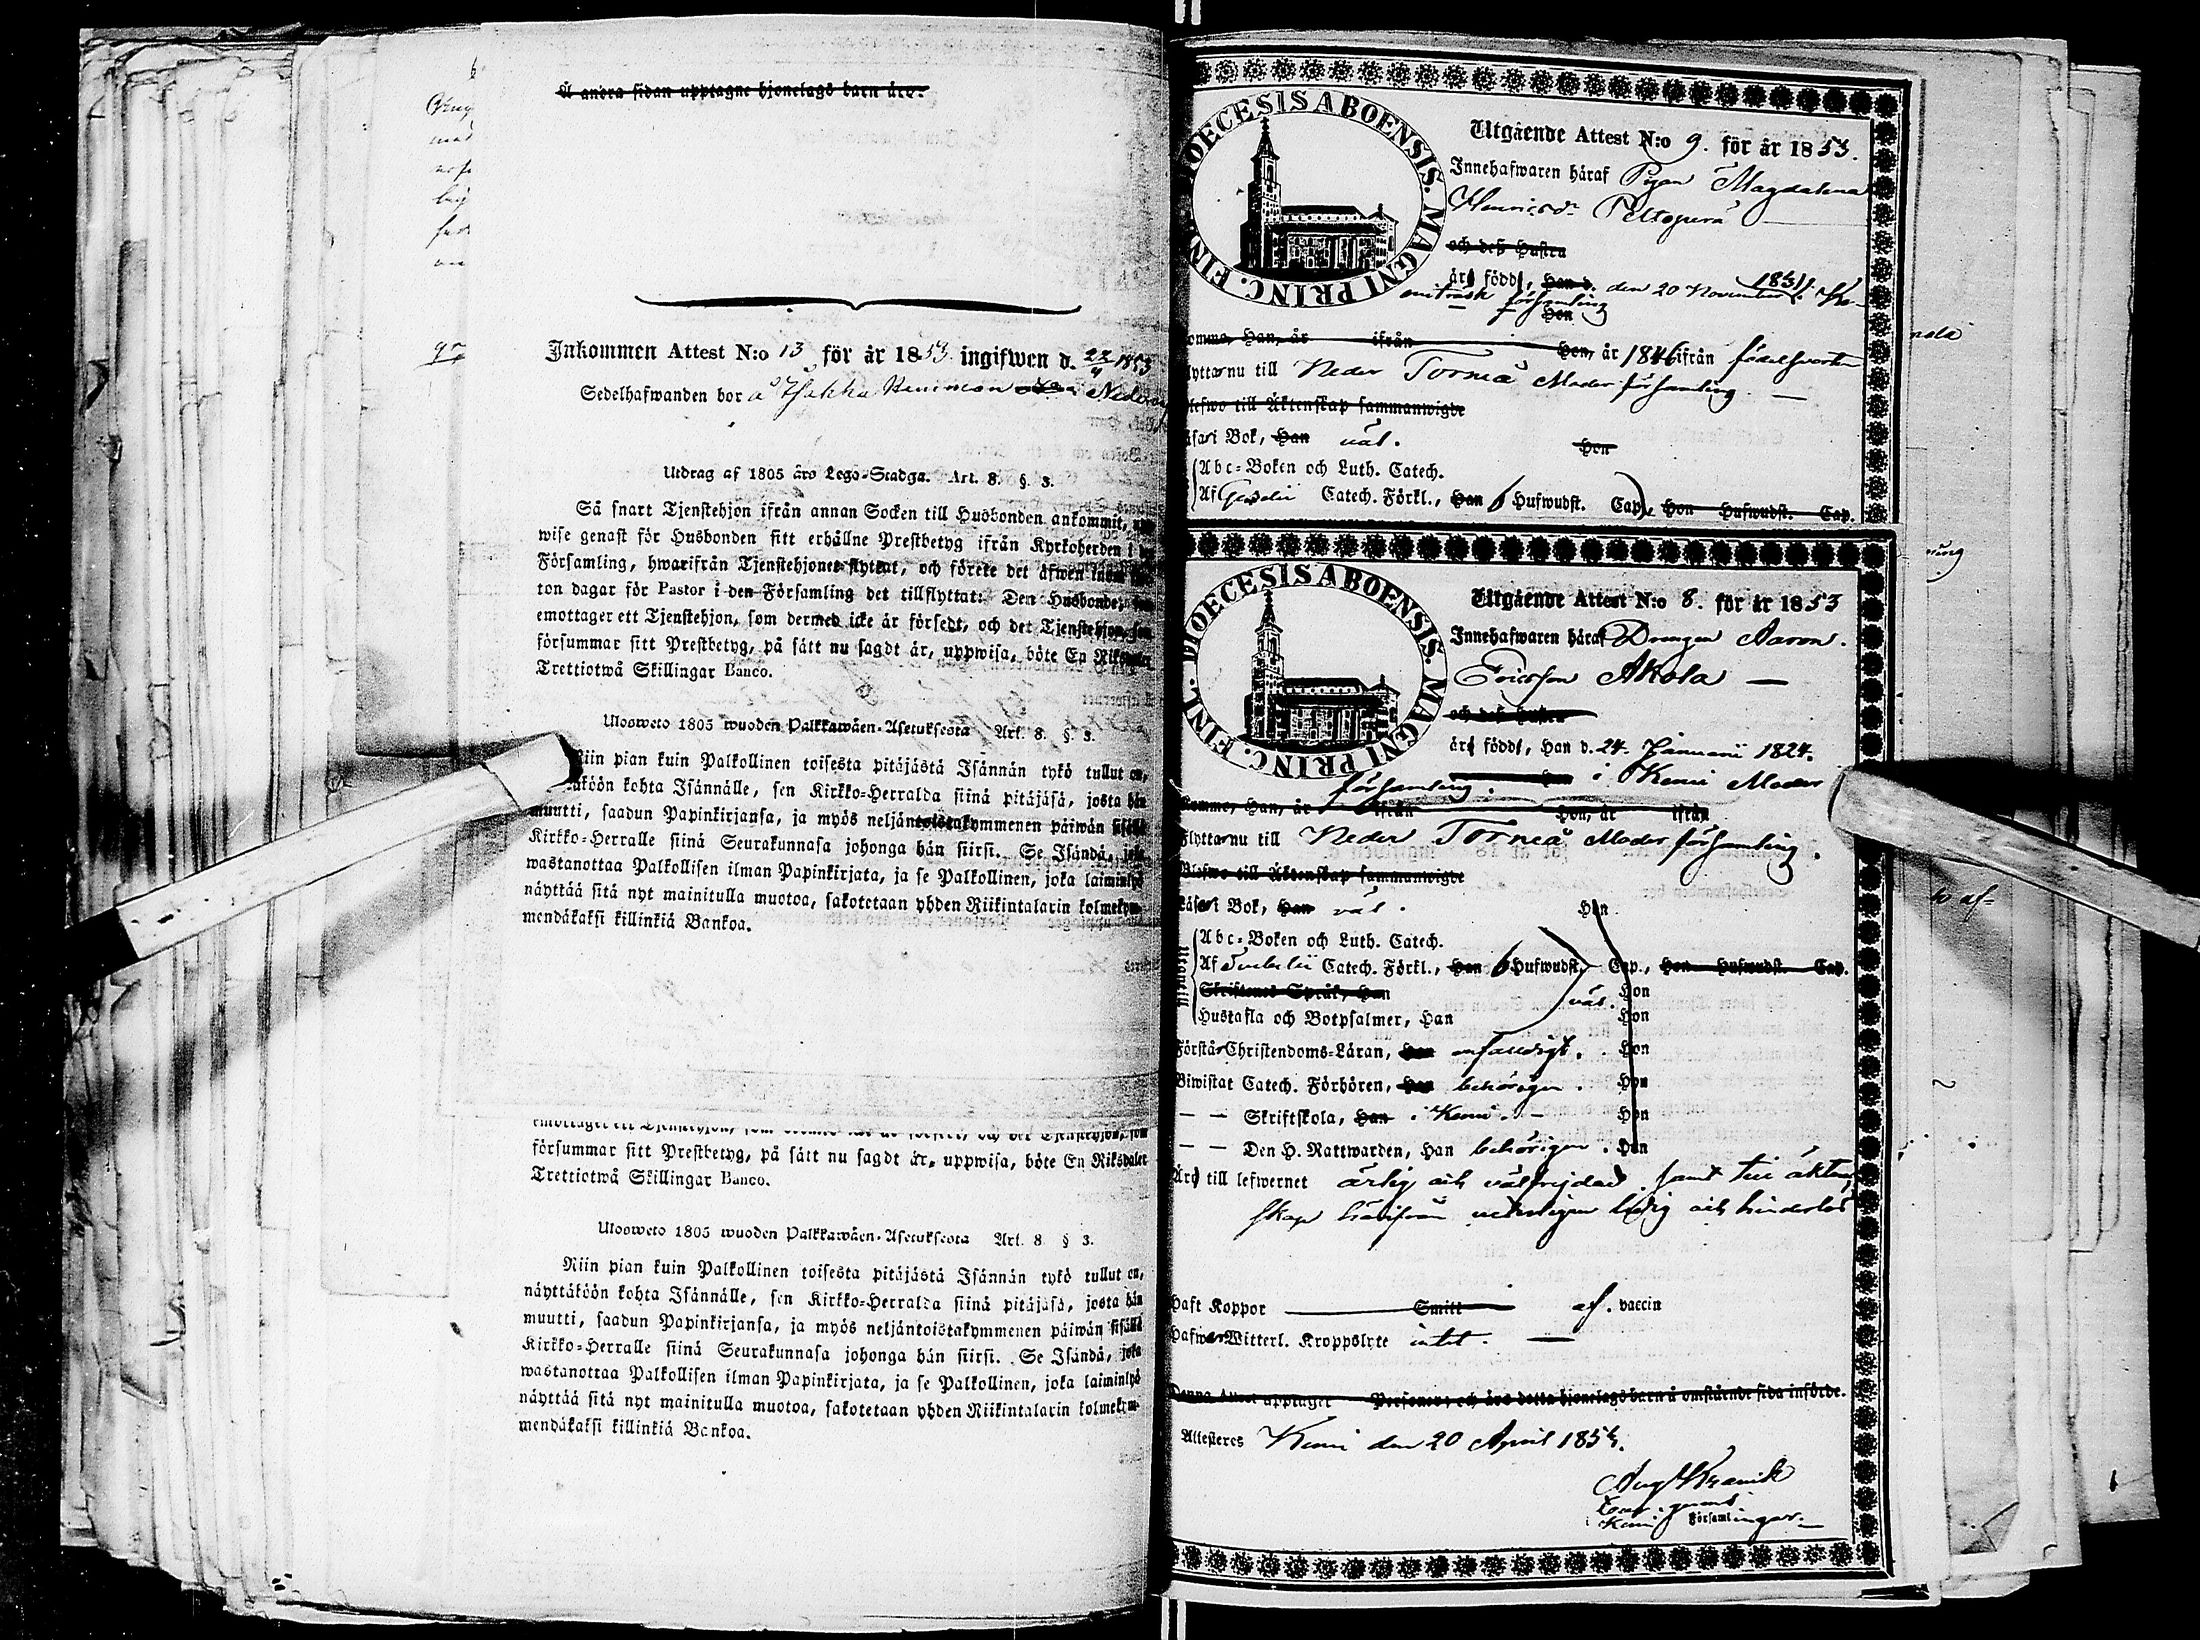 Å andra sidan upptagne hjonelags barn äro.
Inkommen Attest N:o 13 för år 1853 ingifwen d. 22/4 1853
Sedelhafwanden bor å Hemman
Utdrag af 1805 års Lego-Stadga. Art. 8. §. 3.
Så snart Tjenstehjon ifrån annan Socken till Husbonden ankommit,
wise genast för Husbonden sitt erhållne Prestbetyg ifrån Kyrkoherden i
Församling, hwarifrån Tjenstehjonet flyttat, och förete det äfwen
ton dagar för Pastor i den Församling det tillflyttat: Den Husbonde,
emottager ett Tjenstehjon, som dermed icke är försedt, och det Tjenstehjon, som
försummar sitt Prestbetyg, på sätt nu sagdt är, uppwisa, böte En Riksdaler
Trettiotwå Skillingar Banco.
Ulosweto 1805 wuoden Palkkawäen-Asetuksesta Art. 8. §. 3.
Niin pian kuin Palkollinen toisesta pitäjästä Isännän tykö tullut on,
näyttäköön kohta Isännälle, sen Kirkko-Herralda siinä pitäjäsä, josta hän
muutti, saadun Papinkirjansa, ja myös neljäntoistakymmenen päiwän sisällä
Kirkko-Herralle siinä Seurakunnasa johonga hän siirsi. Se Isändä, joka
wastanottaa Palkollisen ilman Papinkirjata, ja se Palkollinen, joka laiminlyö
näyttää sitä nyt mainitulla muotoa, sakotetaan yhden Riikintalarin kolmekym-
mendäkaksi killinkiä Bankoa.
emottager ett Tjenstehjon, som dermed icke är försedt, och det Tjenstehjon, som
försummar sitt Prestbetyg, på sätt nu sagdt är, uppwisa, böte En Riksdaler
Trettiotwå Skillingar Banco.
Ulosweto 1805 wuoden Palkkawäen-Asetuksesta Art. 8 § 3.
Niin pian kuin Palkollinen toisesta pitäjästä Isännän tykö tullut on,
näyttäköön kohta Isännälle, sen Kirkko-Herralda siinä pitäjäsä, josta hän
muutti, saadun Papinkirjansa, ja myös neljäntoistakymmenen päiwän sisällä
Kirkko-Herralle siinä Seurakunnasa johonga hän siirsi. Se Isändä, joka
wastanottaa Palkollisen ilman Papinkirjata, ja se Palkollinen, joka laiminlyö
näyttää sitä nyt mainitulla muotoa, sakotetaan yhden Riikintalarin kolmekym-
mendäkaksi killinkiä Bankoa.
DIOECESIS ABOENSIS. MAGNI PRINC. FINL.
Utgående Attest N:o 9. för år 1853.
Innehafwaren häraf Pigan Magdalena
Henricsdr Peltoperä
och dess Hustru
äro födde, Han d. den 20 November 1831 i
församling
Hon
Komme, Han, år ifrån Hon, år 1846 ifrån födelseorten
Flyttar nu till Neder Torneå Moder församling.
Blefwo till Äktenskap sammanwigde
Läser i Bok, Han väl. Hon
Abc-Boken och Luth. Catech.
Af Catech. Förkl., Han 6 Hufwudst. Cap., Hon Hufwudst. Cap.
DIOECESIS ABOENSIS. MAGNI PRINC. FINL.
Utgående Attest N:o 8. för år 1853
Innehafwaren häraf Drengen Aaron
Ericsson Akola
och dess Hustru
äro födde, Han d. 24 Januarii 1824.
Hon i Kemi Moder
församling.
Komme, Han, år ifrån Hon, år ifrån
Flyttar nu till Neder Torneå Moder församling.
Blefwo till Äktenskap sammanwigde
Läser i Bok, Han väl. Hon
Abc-Boken och Luth. Catech.
Af Svebelii Catech. Förkl., Han 6 Hufwudst. Cap., Hon Hufwudst. Cap.
Skriftenes Språk, Han väl. Hon
Hustafla och Botpsalmer, Han Hon
Förstår Christendoms-Läran, Han enfaldigt. Hon
Biwistat Catech. Förhören, Han behörigen. Hon
— — Skriftskola, Han i Kemi. Hon
— — Den H. Nattwarden, Han behörigen. Hon
Äro till lefwernet ärlig och välfrejdad samt till äkten
skap härifrån ledig och hinderlös
Haft Koppor Smitt af. vaccin
Hafwer Witterl. Kroppslyte intet.
Denna Attest upptager Personer; och äro detta hjonelags barn å omstående sida införde.
Attesteras Kemi den 20 April 1853.
Kemi Församlingar